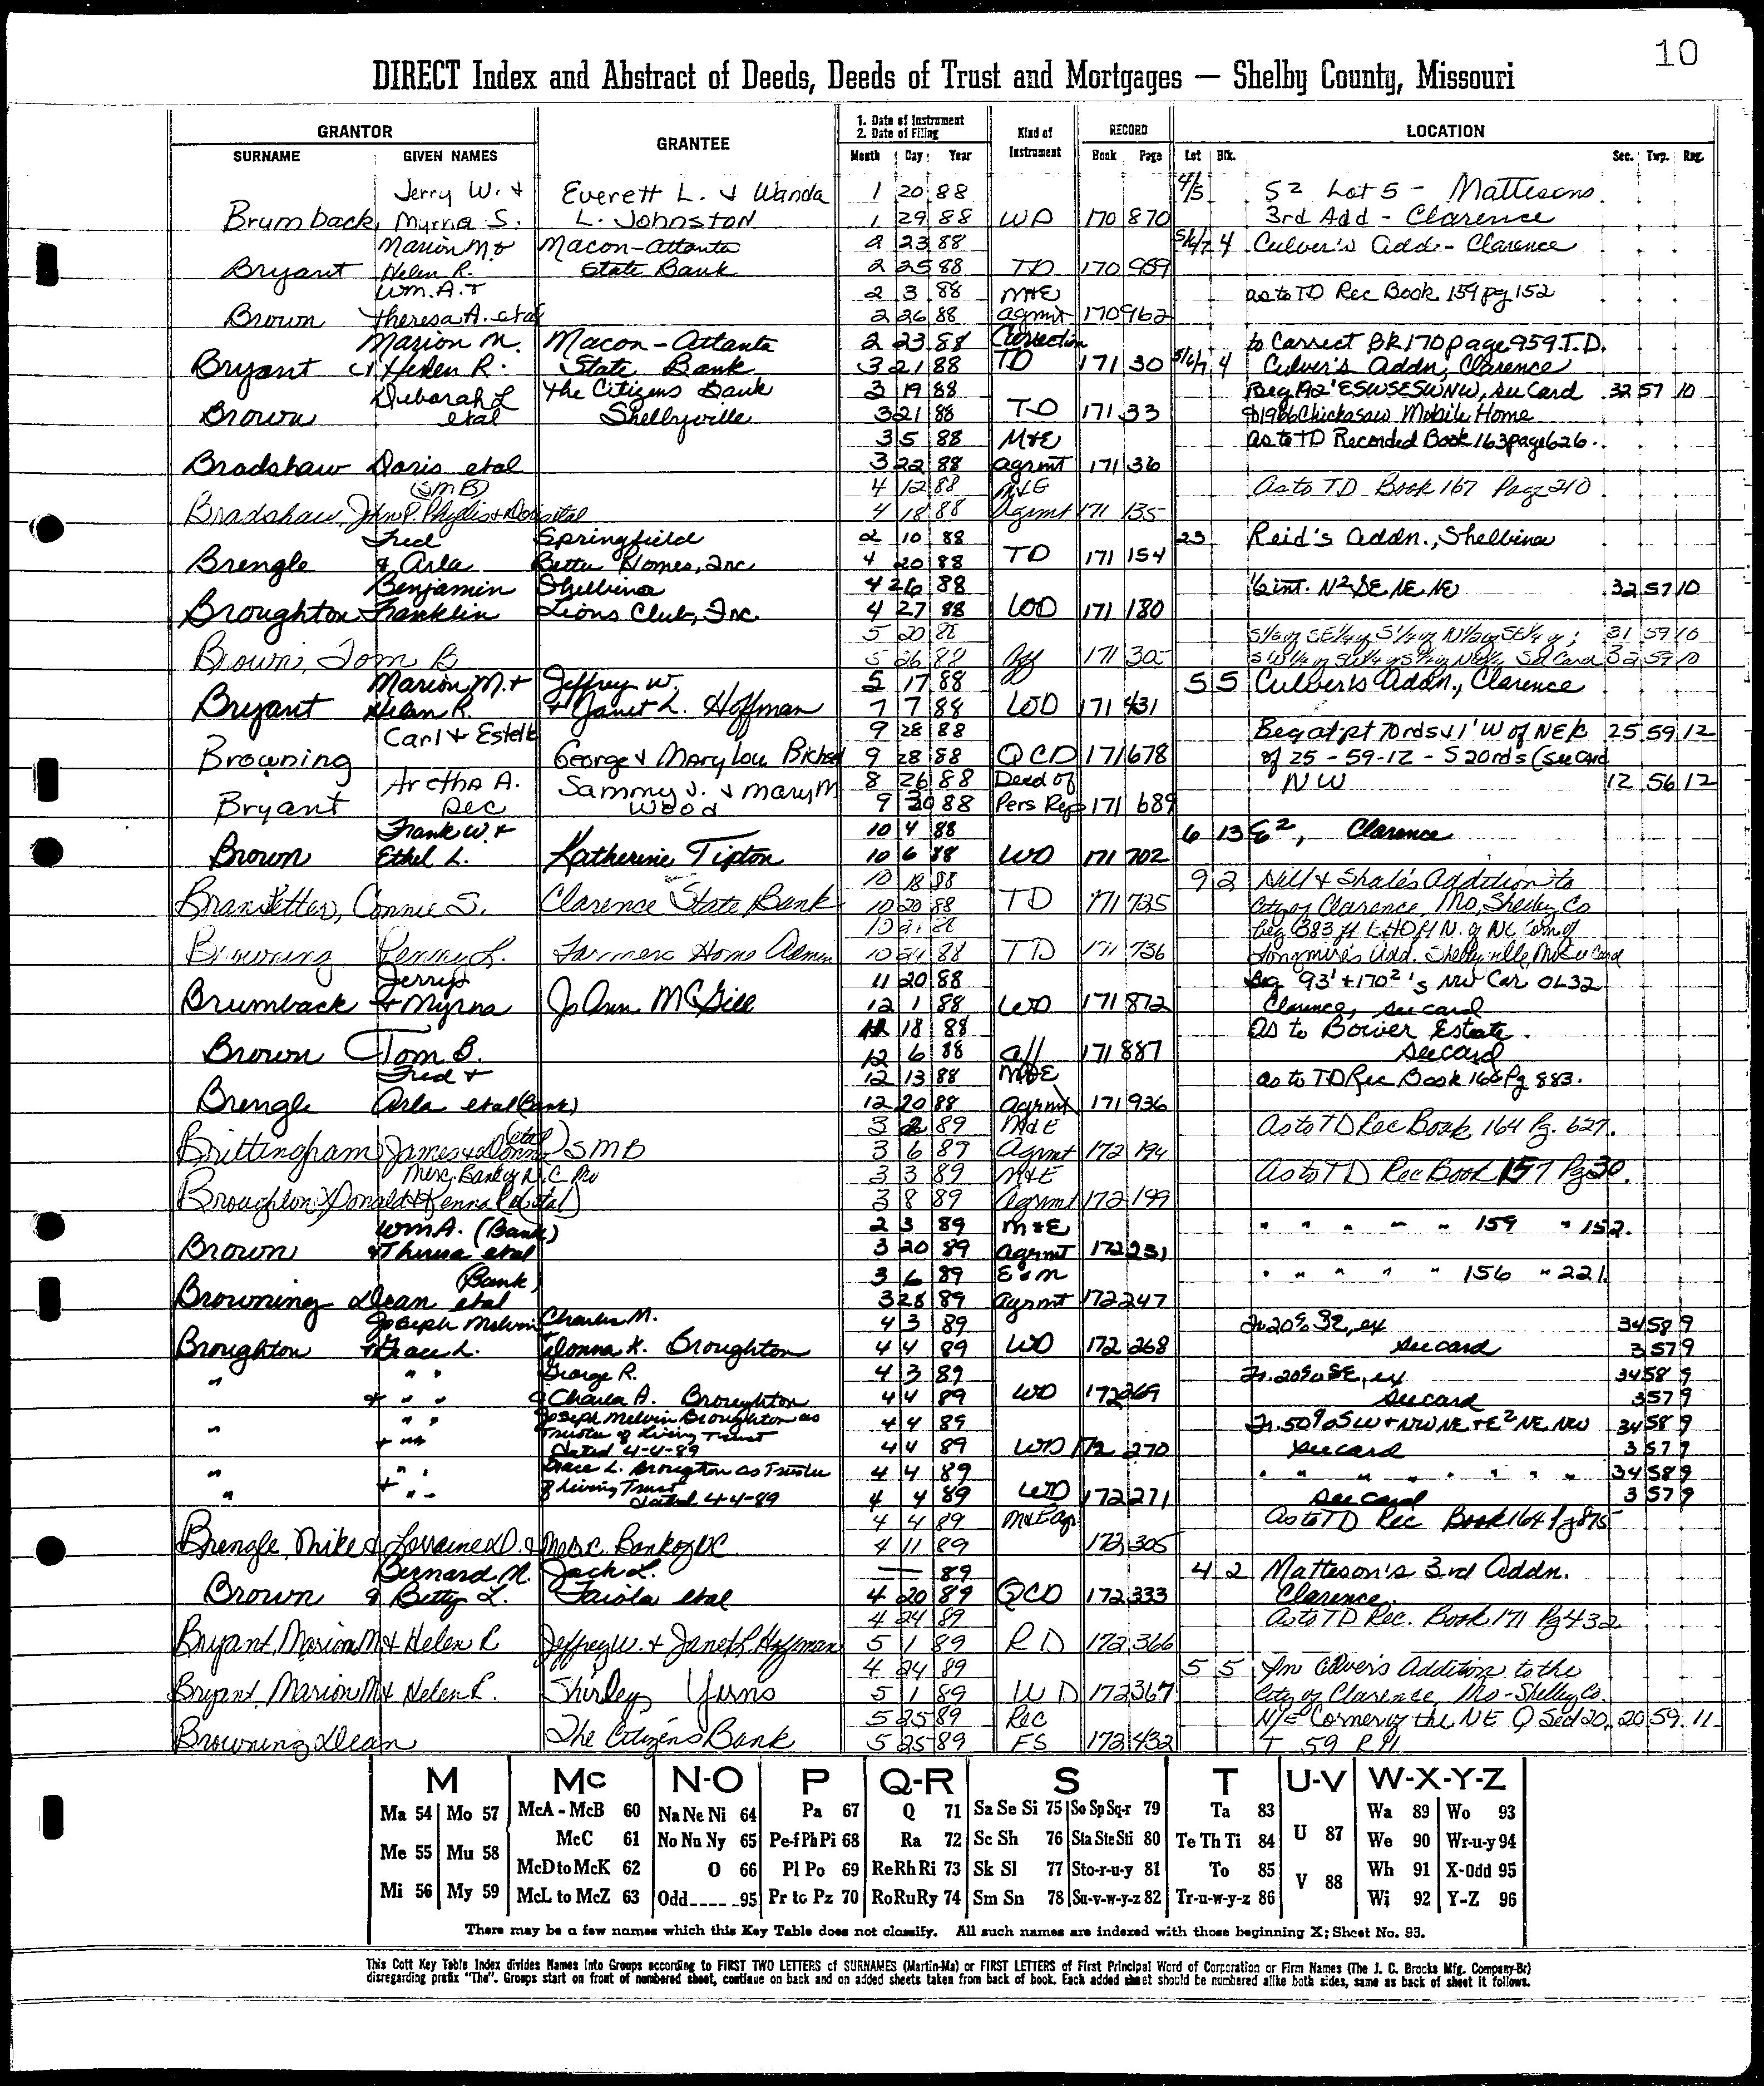 10
DIRECT Index and Abstract of Deeds, Deeds of Trust and Mortgages — Shelby County, Missouri
GRANTOR GRANTEE 1. Date of Instrument 2. Date of Filing Kind of Instrument RECORD LOCATION
SURNAME GIVEN NAMES Month Day Year Book Page Lot Blk. Sec. Twp. Rng.
Jerry W. & Everett L. & Wanda 1 20 88 4/5 S2 Lot 5 - Mattesons
Brumback Myrna S. L. Johnston 1 29 88 WD 170 870 3rd Add - Clarence
Marion M. & Macon-Atlanta 2 23 88 5/6/7 4 Culver's Add - Clarence
Bryant Helen R. State Bank 2 25 88 TD 170 959
Wm. A. & 2 3 88 M+E as to TD Rec Book 159 pg 152
Brown Theresa A. etal 2 26 88 agrmt 170 962
Marion M. Macon-Atlanta 2 23 88 Correction to Correct BK 170 page 959 T.D.
Bryant & Helen R. State Bank 3 21 88 TD 171 30 5/6/7 4 Culver's Addn, Clarence
Deborah L The Citizens Bank 3 19 88 Beg 192' ESWSESWNW, see Card 32 57 10
Brown etal Shelbyville 3 21 88 TD 171 33 & 1986 Chickasaw Mobile Home
3 5 88 M+E as to TD Recorded Book 163 page 626.
Bradshaw Doris etal 3 22 88 agrmt 171 36
(SMB) 4 12 88 M+E As to TD Book 167 Page 210
Bradshaw, John P. Phyllis & Doris etal 4 18 88 Agrmt 171 135
Fred Springfield 2 10 88 23 Reid's Addn., Shelbina
Brengle & Arla Better Homes, Inc 4 20 88 TD 171 154
Benjamin Shelbina 4 26 88 1/6 int. N2 SE NE NE 32 57 10
Broughton Franklin Lions Club, Inc. 4 27 88 WD 171 180
5 20 88 31 59 10
Brown, Tom B 5 26 88 Aff 171 305 See Card 32 59 10
Marion M. & Jeffrey W. 5 17 88 5 5 Culver's Addn., Clarence
Bryant Helen R. & Janet L. Hoffman 7 7 88 WD 171 431
Carl & Estelle 9 28 88 Beg at pt 70 rds & 1' W of NE/c 25 59 12
Browning George & Mary Lou 9 28 88 QCD 171 678 of 25-59-12 - S 20 rds (See Card
Aretha A. Sammy J. & Mary M 8 26 88 Deed of NW 12 56 12
Bryant Dec Wood 9 30 88 Pers Rep 171 689
Frank W. & 10 4 88 6 13 E2, Clarence
Brown Ethel L. Katherine Tipton 10 6 88 WD 171 702
10 18 88 9 2 Hill & Shale's Addition to
Branstetter, Connie S. Clarence State Bank 10 20 88 TD 171 725 City of Clarence, Mo, Shelby Co
10 21 88
Browning Penny L. Farmers Home Admin 10 21 88 TD 171 736 Longmire's Add. Shelbyville, Mo See Card
Jerry 11 20 88 Beg 93' + 170²'s NW Cor OL32
Brumback & Myrna Jo Ann McGill 12 1 88 WD 171 872 Clarence, see card
18 88 as to Bower Estate.
Brown Tom B. 12 6 88 aff 171 887 see card
Fred & 12 13 88 M+E as to TD Rec Book 166 Pg 883.
Brengle Arla etal (Bank) 12 20 88 Agrmt 171 936
3 2 89 M&E As to TD Rec Book 164 Pg. 627.
Brittingham James & Donna (etal) SMB 3 6 89 Agrmt 172 194
Merc. Bank of N.C. Mo 3 3 89 M+E As to TD Rec Book 157 Pg 30.
Broughton Donald & Kenna (etal) 3 8 89 Agrmt 172 199
Wm A. (Bank) 2 3 89 M+E " " " " " 159 " 152.
Brown & Theresa etal 3 20 89 agrmt 172 231
(Bank) 3 6 89 E&M " " " " " 156 " 221
Browning Dean etal 3 28 89 agrmt 172 247
Joseph Melvin Charles M. 4 3 89 In 20% SE, ex 34 58 9
Broughton & Grace L. & Donna K. Broughton 4 4 89 WD 172 268 see card 3 57 9
" " " George R. 4 3 89 In 20% SE, ex 34 58 9
& " " & Charla A. Broughton 4 4 89 WD 172 269 see card 3 57 9
" " " Joseph Melvin Broughton as 4 4 89 In 50% SW & NW NE & E2 NE NW 34 58 9
& " " Trustee of Living Trust
Dated 4-4-89 4 4 89 WD 172 270 see card 3 57 9
" " " Grace L. Broughton as Trustee 4 4 89 " " " " " " " " 34 58 9
" & " " of Living Trust
dated 4-4-89 4 4 89 WD 172 271 see card 3 57 9
4 4 89 M&E Ag. As to TD Rec Book 164 Pg 875
Brengle, Mike & Lorraine D. & Merc. Bank of NC 4 11 89 172 305
Bernard N. Jack L. — 89 4 2 Matteson's 3rd Addn.
Brown & Betty L. Taiola etal 4 20 89 QCD 172 333 Clarence
4 24 89 As to TD Rec. Book 171 Pg 432
Bryant, Marion M & Helen R Jeffrey W. & Janet L Hoffman 5 1 89 RD 172 366
4 24 89 5 5 In Culver's Addition to the
Bryant, Marion M & Helen R. Shirley 5 1 89 WD 172 367 City of Clarence, Mo - Shelby Co.
5 25 89 Rec N/E Corner of the NE Q Sec 20, 20 59 11
Browning Dean The Citizens Bank 5 25 89 FS 172 432 T 59 R 11
M Mc N-O P Q-R S T U-V W-X-Y-Z
Ma 54 Mo 57 McA - McB 60 Na Ne Ni 64 Pa 67 Q 71 Sa Se Si 75 So Sp Sq-r 79 Ta 83 Wa 89 Wo 93
Me 55 Mu 58 McC 61 No Nu Ny 65 Pe-f Ph Pi 68 Ra 72 Sc Sh 76 Sta Ste Sti 80 Te Th Ti 84 U 87 We 90 Wr-u-y 94
McD to McK 62 O 66 Pl Po 69 Re Rh Ri 73 Sk Sl 77 Sto-r-u-y 81 To 85 V 88 Wh 91 X-Odd 95
Mi 56 My 59 McL to McZ 63 Odd-----95 Pr to Pz 70 Ro Ru Ry 74 Sm Sn 78 Su-v-w-y-z 82 Tr-u-w-y-z 86 Wi 92 Y-Z 96
There may be a few names which this Key Table does not classify. All such names are indexed with those beginning X; Sheet No. 95.
This Cott Key Table Index divides Names Into Groups according to FIRST TWO LETTERS of SURNAMES (Martin-Ma) or FIRST LETTERS of First Principal Word of Corporation or Firm Names (The J. C. Brooks Mfg. Company-Br)
disregarding prefix "The". Groups start on front of numbered sheet, continue on back and on added sheets taken from back of book. Each added sheet should be numbered alike both sides, same as back of sheet it follows.